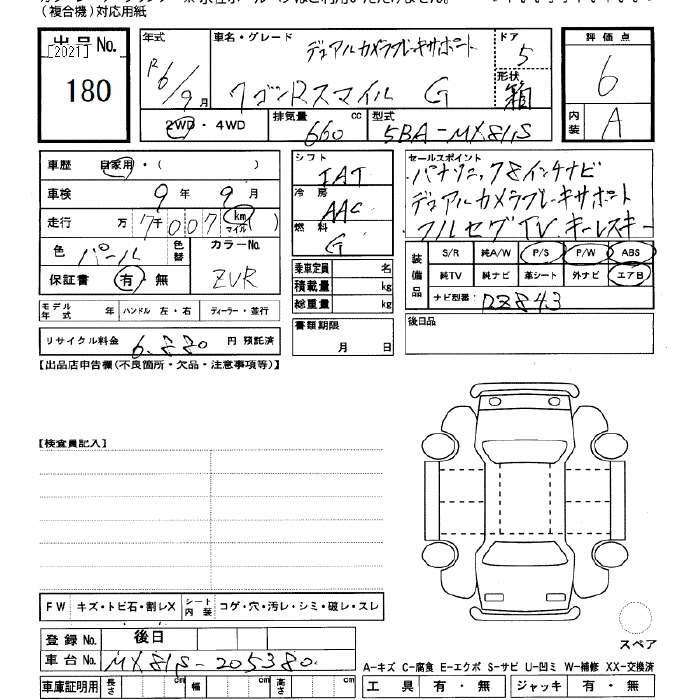 (複合機)対応用紙
出品No.
[2021]
180
年式
R6/9月
車名・グレード
デュアルカメラブレーキサポート
ワゴンRスマイル G
ドア
5
形状
箱
評価点
6
内装
A
2WD・4WD
排気量
660 cc
型式
5BA-MX81S
車歴 自家用・( )
車検 9年 9月
走行 万 7千007 km マイル
色 パール 色替
カラーNo.
ZVR
保証書 有・無
シフト
IAT
冷房
AAC
燃料
G
セールスポイント
パナソニック8インチナビ
デュアルカメラブレーキサポート
フルセグTV キーレスキー
装備品
S/R 純A/W P/S P/W ABS
純TV 純ナビ 革シート 外ナビ エアB
ナビ型番:
乗車定員 名
積載量 kg
総重量 kg
モデル年式 年 ハンドル 左・右 ディーラー・並行
書類期限
月 日
後日品
リサイクル料金 6,880 円 預託済
【出品店申告欄(不良箇所・欠品・注意事項等)】
【検査員記入】
FW キズ・トビ石・割レX シート内装 コゲ・穴・汚レ・シミ・破レ・スレ
登録No. 後日
車台No. MX81S-205380
スペア
A-キズ C-腐食 E-エクボ S-サビ U-凹ミ W-補修 XX-交換済
車庫証明用 長さ cm 幅 cm 高さ cm
工具 有・無 ジャッキ 有・無